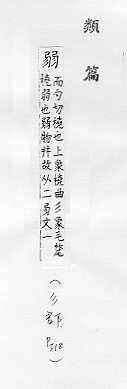 類篇
弱
而勺切橈也上象橈曲彡象毛氂
橈弱也弱物并故从二㐱文一
(彡部 P318)